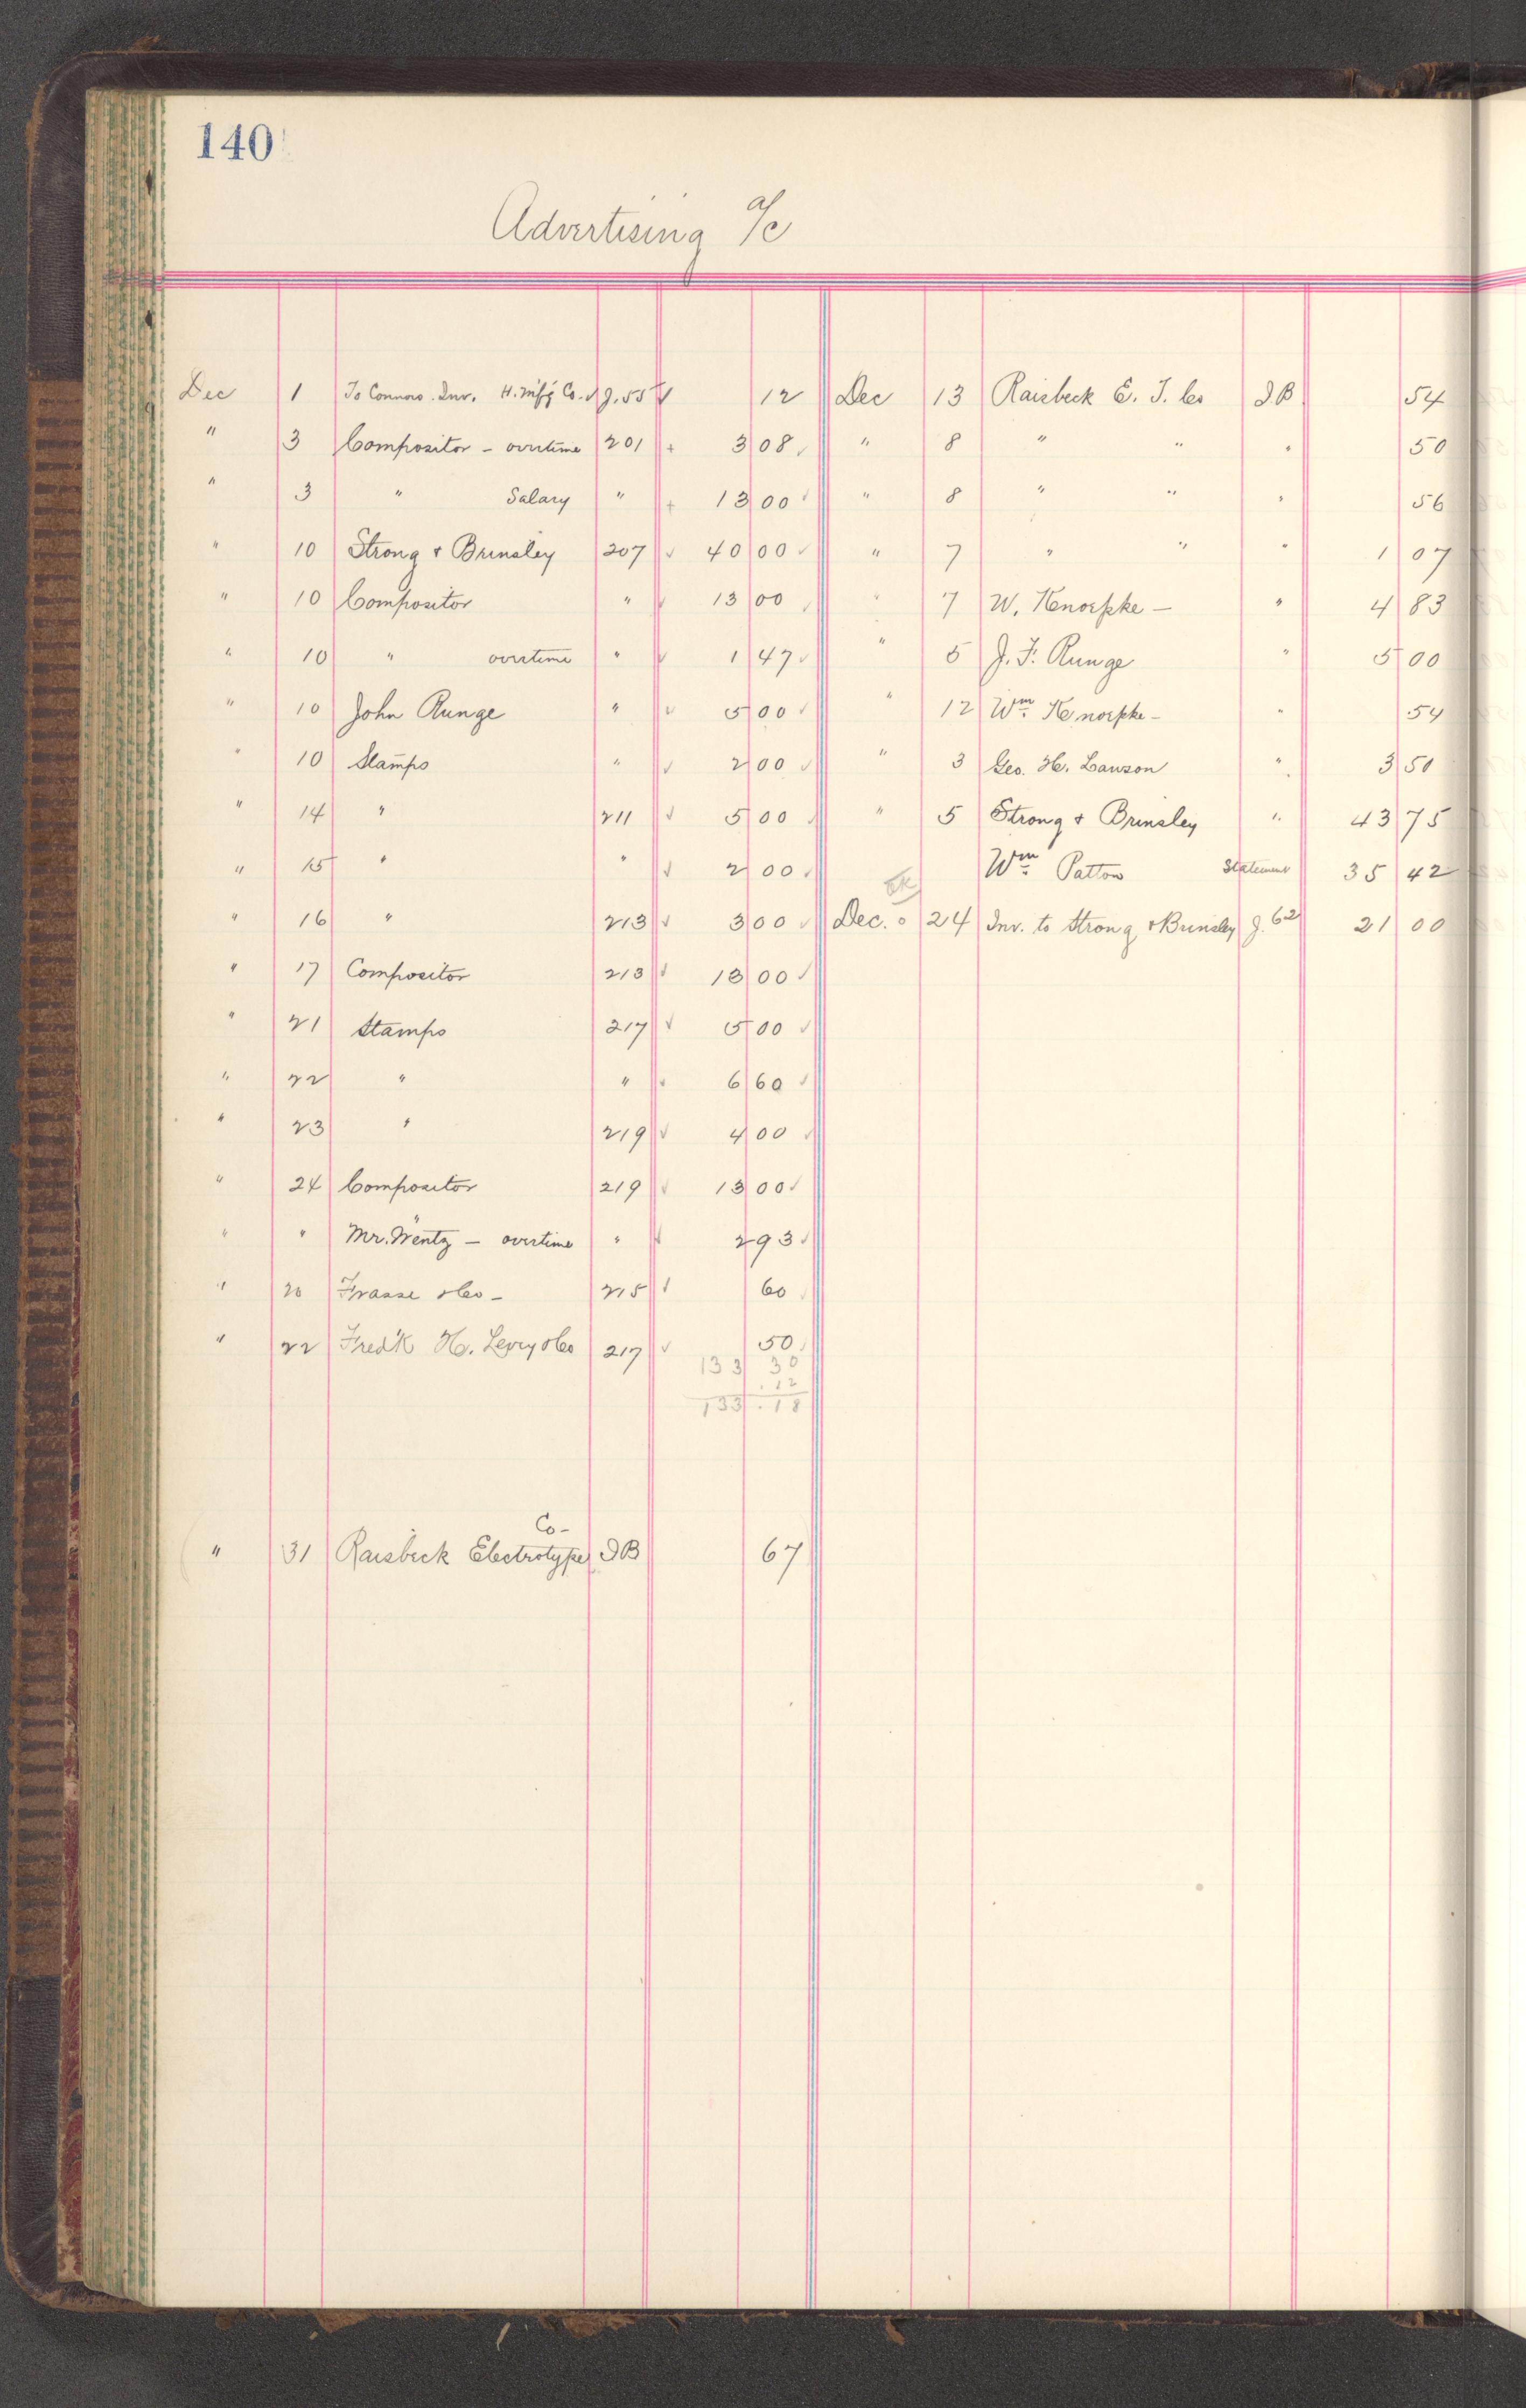 140
Advertising a/c
Dec 1 To Connors. Inv. H. Mf'g Co. √ J. 55 √ 12
" 3 Compositor - overtime 201 + 3 08 √
" 3 " Salary " + 13 00 √
" 10 Strong & Brinsley 207 √ 40 00 √
" 10 Compositor " √ 13 00 √
" 10 " overtime " √ 1 47 √
" 10 John Runge " √ 5 00 √
" 10 Stamps " √ 2 00 √
" 14 " 211 √ 5 00 √
" 15 " " √ 2 00 √
" 16 " 213 √ 3 00 √
" 17 Compositor 213 √ 13 00 √
" 21 Stamps 217 √ 5 00 √
" 22 " " √ 6 60 √
" 23 " 219 √ 4 00 √
" 24 Compositor 219 √ 13 00 √
" " Mr. Wentz - overtime " √ 2 93 √
" 20 Frasse & Co - 215 √ 60 √
" 22 Fred'k H. Levey & Co 217 √ 50 √
133 30
.12
133.18
" 31 Raisbeck Electrotype Co- I B 67
Dec 13 Raisbeck E. T. Co I B 54
" 8 " " " 50
" 8 " " " 56
" 7 " " " 1 07
" 7 W. Knoepke - " 4 83
" 5 J. F. Runge " 5 00
" 12 Wm. Knoepke - " 54
" 3 Geo. H. Lawson " 3 50
" 5 Strong & Brinsley " 43 75
Wm. Patton Statement 35 42
Dec. 24 Inv. to Strong & Brinsley J. 62 21 00